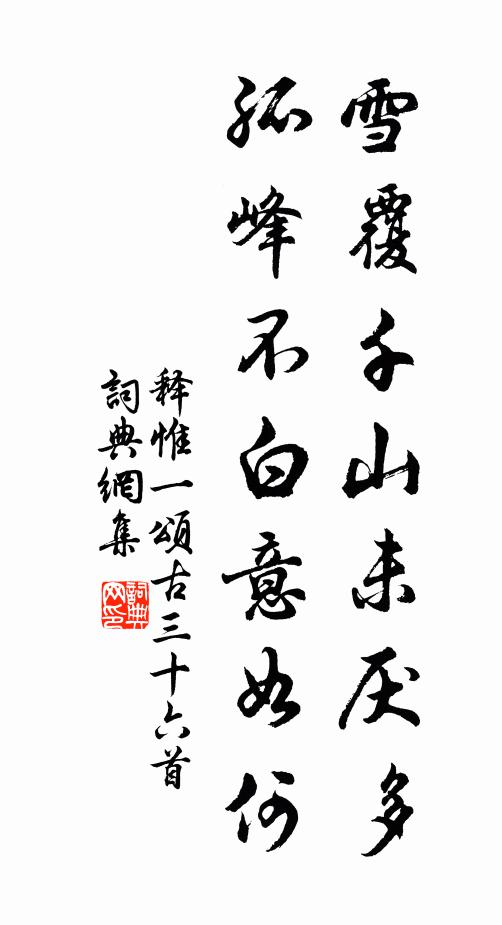 雪覆千山未厌多
孤峰不白意如何
释惟一頌古三十六首
詞典網集
詞典网印